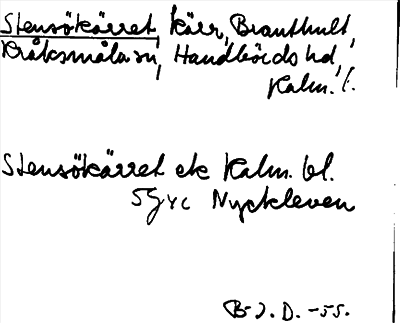 Stensökärret, kärr, Branthult,
Kråksmåla sn, Handbörds hd,
Kalm. l.
Stensökärret ek Kalm. bl.
5G yc Nyckleven
B-J. D. -55.